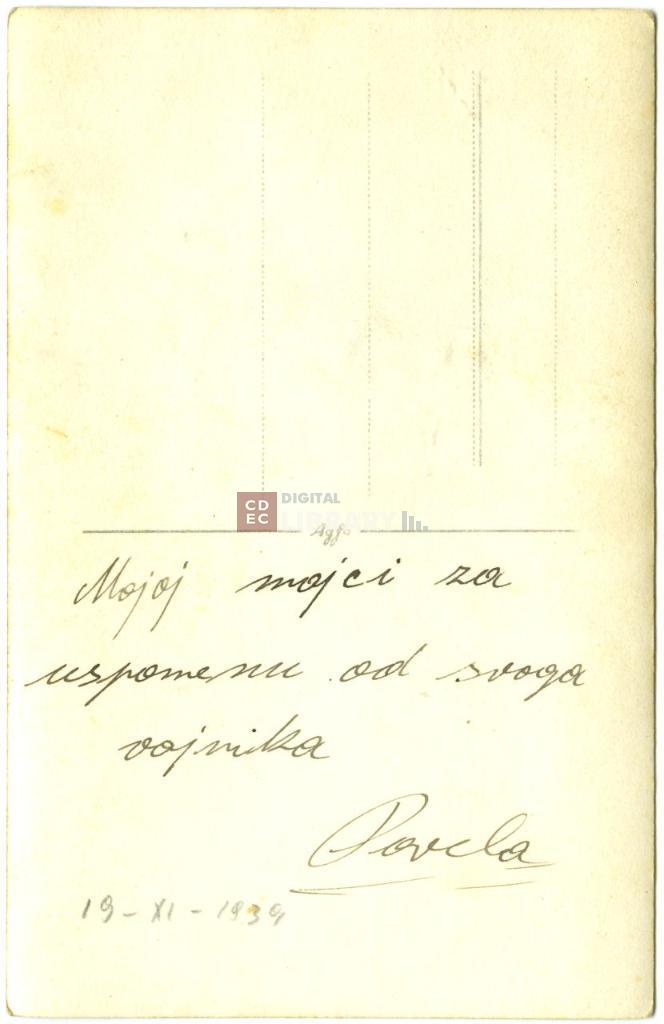 CDEC DIGITAL LIBRARY
Agfa
Mojoj majci za
uspomenu od svoga
vojnika
Pavela
19-XI-1939